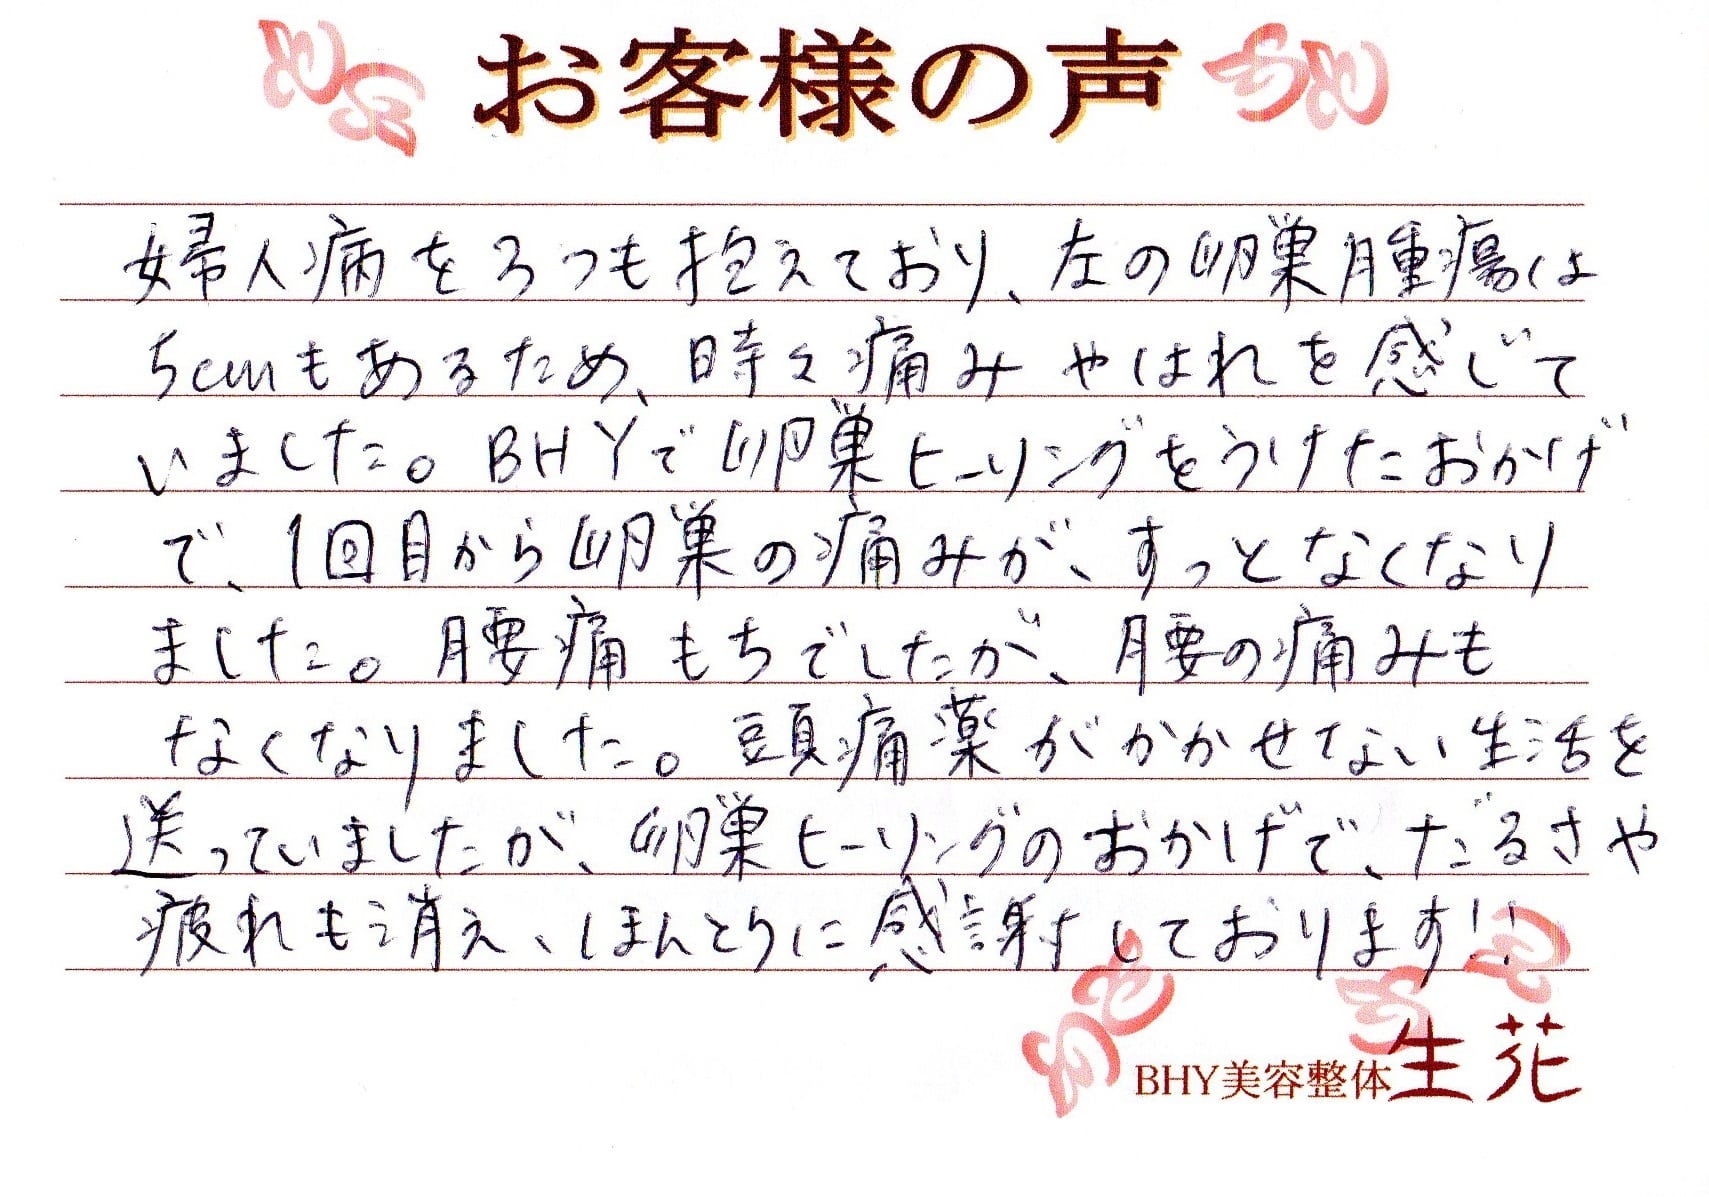 お客様の声
婦人病を3つも抱えており、左の卵巣腫瘍は
5cmもあるため、時々痛みやはれを感じて
いました。BHYで卵巣ヒーリングをうけたおかげ
で、1回目から卵巣の痛みが、すっとなくなり
ました。腰痛もちでしたが、腰の痛みも
なくなりました。頭痛薬がかかせない生活を
送っていましたが、卵巣ヒーリングのおかげで、だるさや
疲れも消え、ほんとうに感謝しております!!
BHY美容整体生花